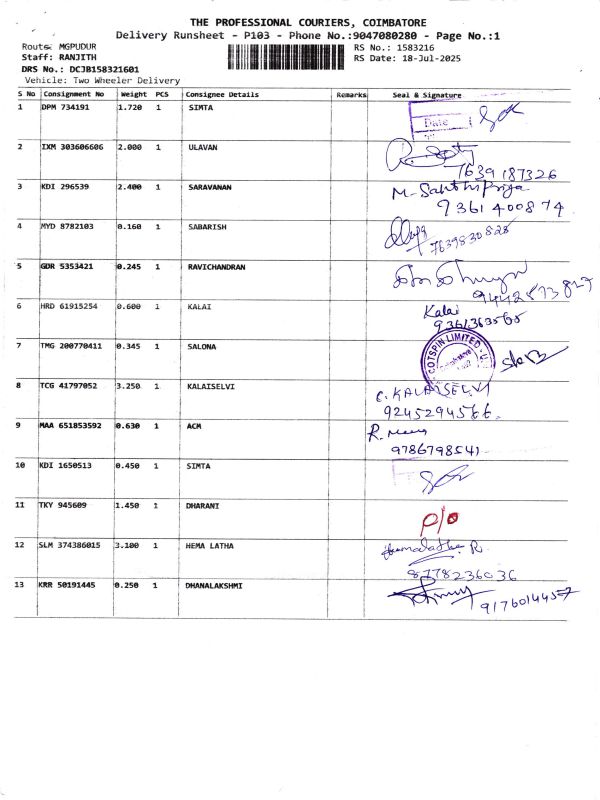 THE PROFESSIONAL COURIERS, COIMBATORE
Delivery Runsheet - P103 - Phone No.:9047080280 - Page No.:1
Route: MGPUDUR
RS No.: 1583216
Staff: RANJITH
RS Date: 18-Jul-2025
DRS No.: DCJB158321601
Vehicle: Two Wheeler Delivery
S No Consignment No Weight PCS Consignee Details Remarks Seal & Signature
1 DPM 734191 1.720 1 SIMTA
Date
2 IXM 303606606 2.000 1 ULAVAN
7639187326
3 KDI 296539 2.400 1 SARAVANAN M. Santhi Priya
9361400874
4 MYD 8782103 0.160 1 SABARISH
7639830828
5 GDR 5353421 0.245 1 RAVICHANDRAN
9442873827
6 HRD 61915254 0.600 1 KALAI Kalai
7 TMG 200770411 0.345 1 SALONA COTSPIN LIMITED
8 TCG 41797052 3.250 1 KALAISELVI C. KALAISELVI
9245294566.
9 MAA 651853592 0.630 1 ACM
9786798541
10 KDI 1650513 0.450 1 SIMTA
11 TKY 945609 1.450 1 DHARANI P/O
12 SLM 374386015 3.100 1 HEMA LATHA Hemalatha R.
8778236036
13 KRR 50191445 0.250 1 DHANALAKSHMI
9176014457